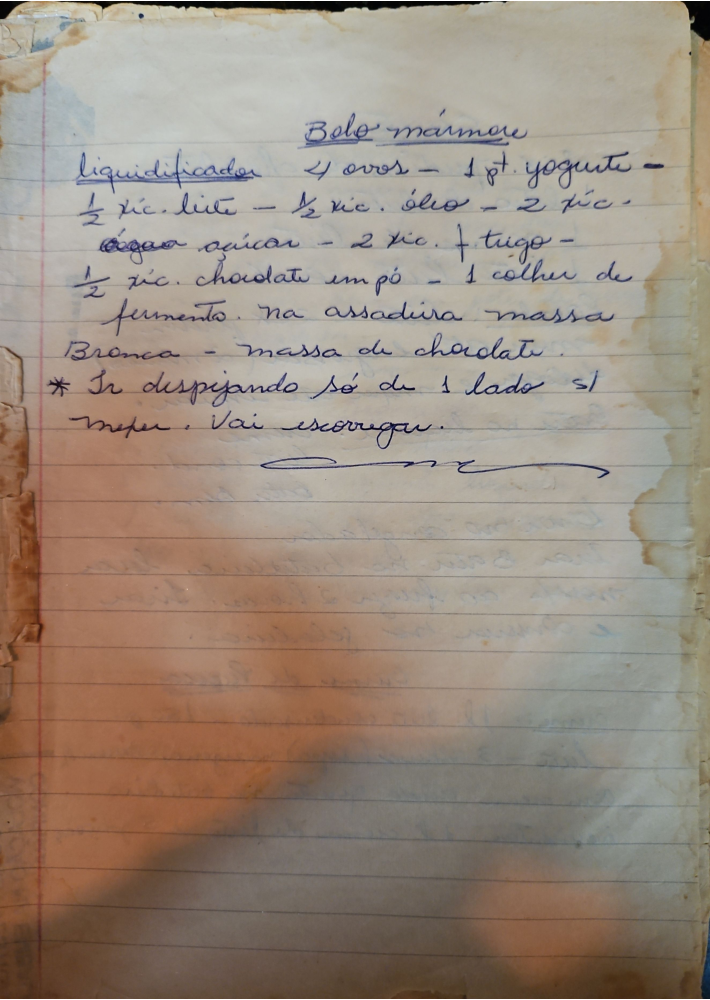 Bolo mármore
liquidificador 4 ovos - 1 pt. yogurte -
1/2 xic. leite - 1/2 xic. óleo - 2 xíc.
açúcar - 2 xic. f trigo -
1/2 xíc. chocolate em pó - 1 colher de
fermento. na assadeira massa
Branca - massa de chocolate.
* Ir despejando só de 1 lado s/
mexer. Vai escorregar.